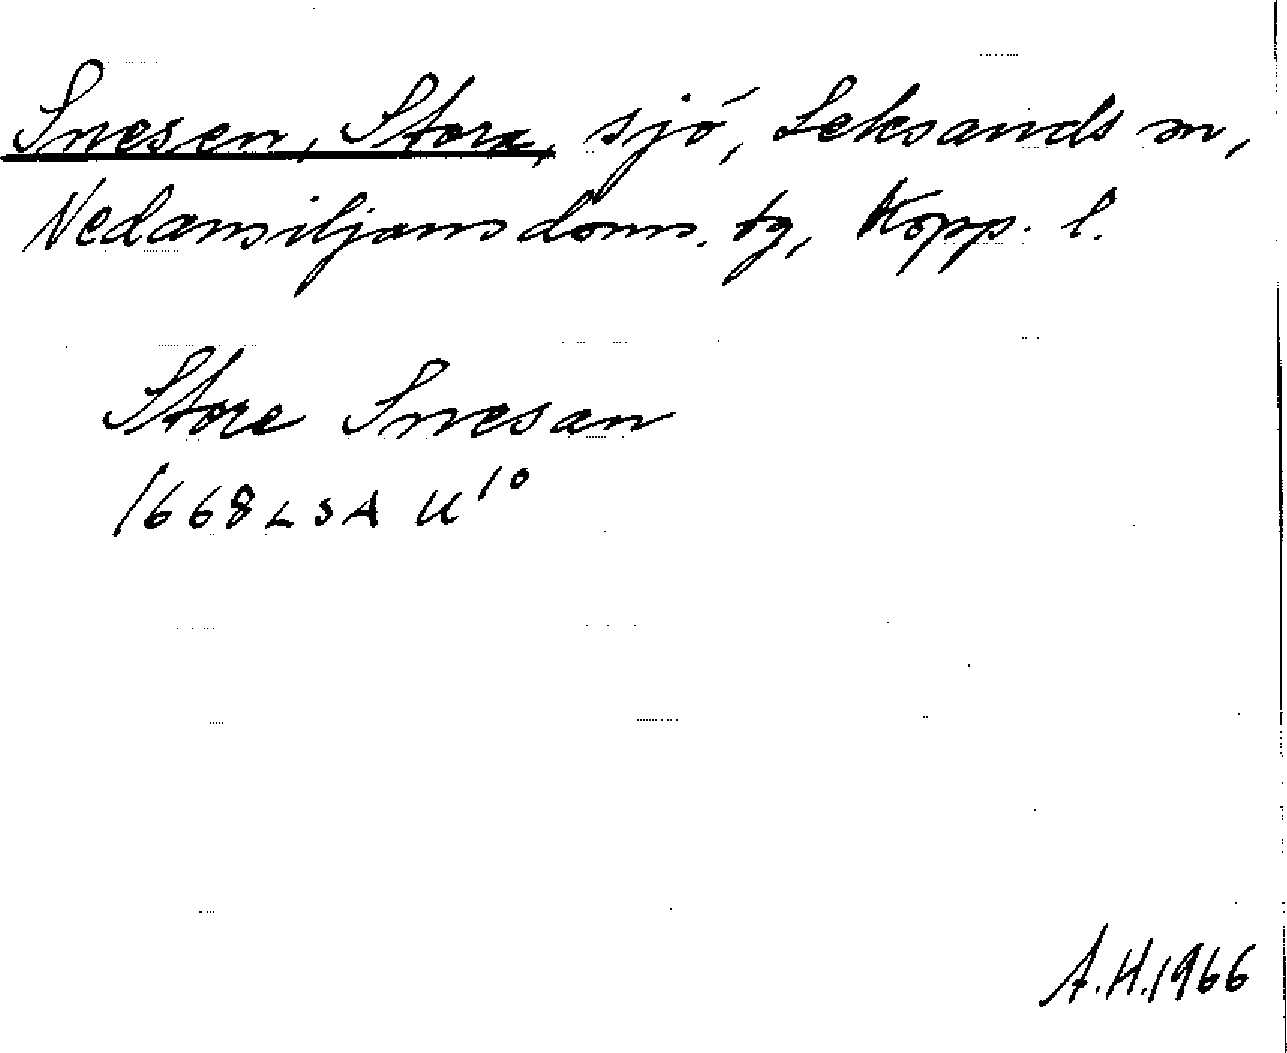 Snesen, Stora, sjö, Leksands sn,
Nedansiljans doms. tg, Kopp. l.
Store Snesan
1668 LSA U10
A.H. 1966